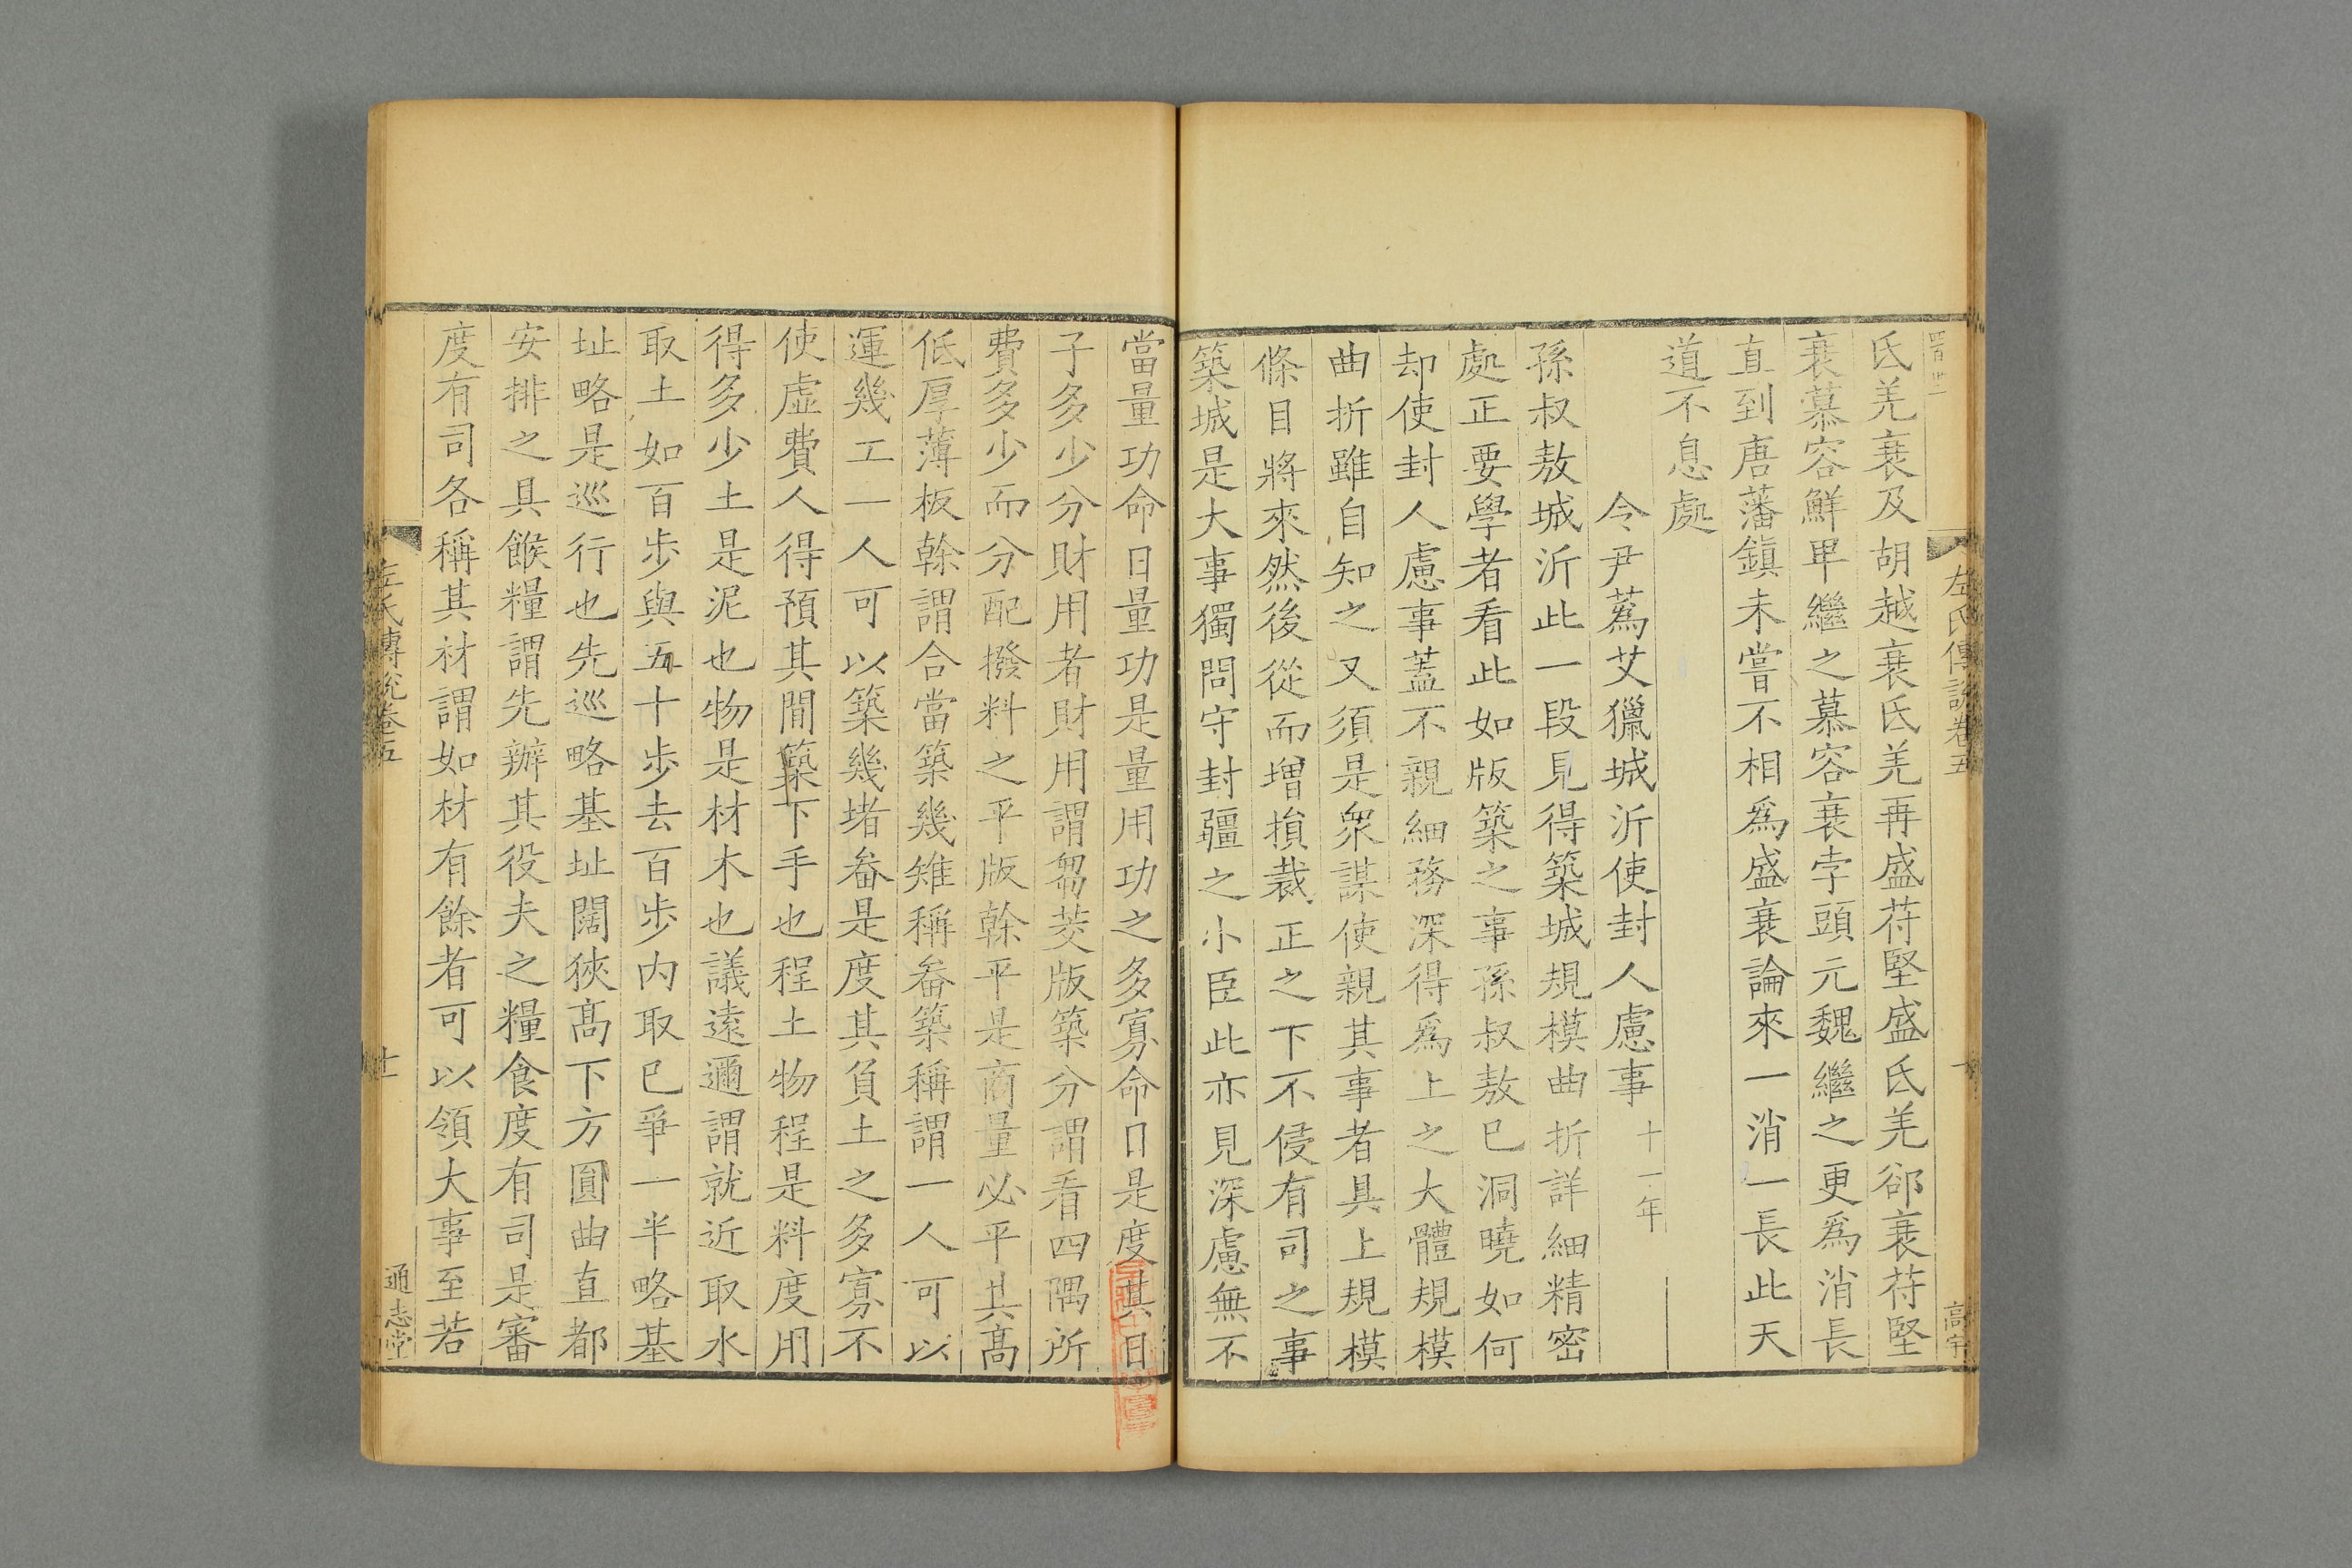 左氏傳説卷五
十
高宇
氐羌衰及胡越衰氐羌再盛苻堅盛氐羌郤衰苻堅
衰慕容鮮卑繼之慕容衰孛頭元魏繼之更爲消長
直到唐藩鎮未嘗不相爲盛衰論來一消一長此天
道不息處
令尹蒍艾獵城沂使封人慮事十一年
孫叔敖城沂此一段見得築城規模曲折詳細精密
處正要學者看此如版築之事孫叔敖已洞曉如何
却使封人慮事蓋不親細務深得爲上之大體規模
曲折雖自知之又須是衆謀使親其事者具上規模
條目將來然後從而增損裁正之下不侵有司之事
築城是大事獨問守封疆之小臣此亦見深慮無不
當量功命日量功是量用功之多寡命日是度其日
子多少分財用者財用謂芻茭版築分謂看四隅所
費多少而分配撥料之平版榦平是商量必平其髙
低厚薄板榦謂合當築幾雉稱畚築稱謂一人可以
運幾工一人可以築幾堵畚是度其負土之多寡不
使虛費人得預其間築下手也程土物程是料度用
得多少土是泥也物是材木也議遠邇謂就近取水
取土如百步與五十步去百步内取已爭一半略基
址略是巡行也先巡略基址闊狹髙下方圓曲直都
安排之具餱糧謂先辦其役夫之糧食度有司是審
度有司各稱其材謂如材有餘者可以領大事至若
左氏傳説卷五
十一
通志堂